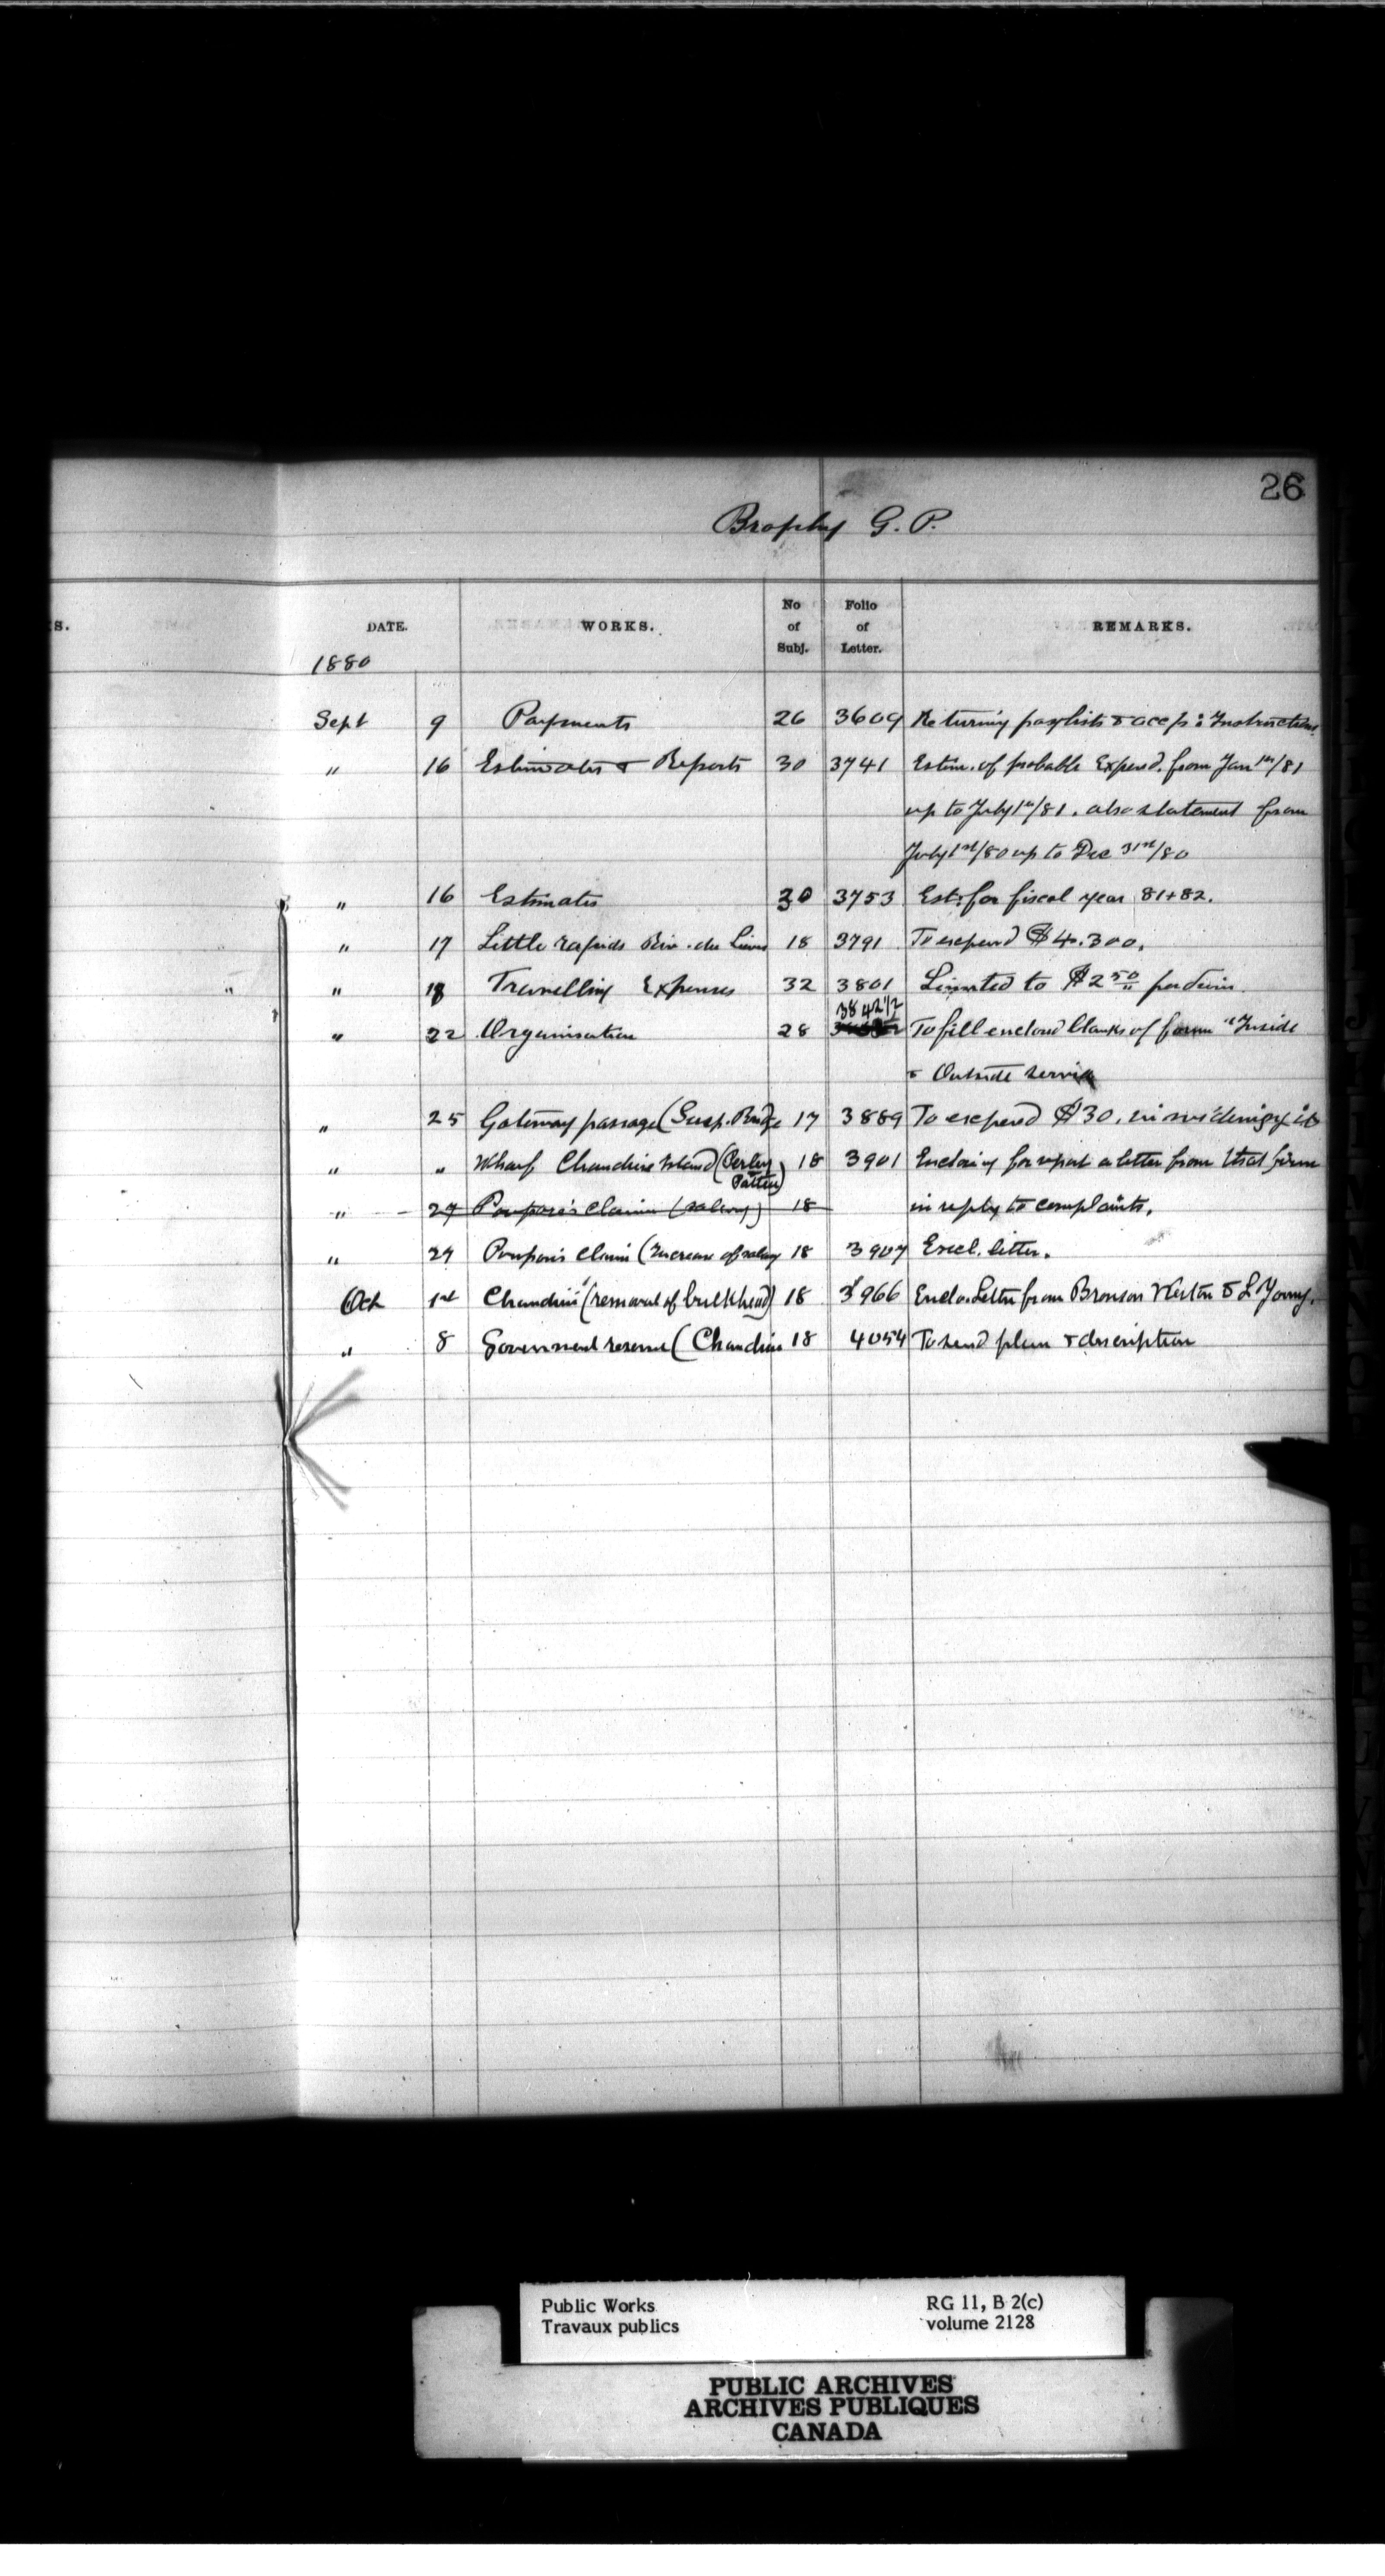 26
Brophy G. P.
S. DATE. WORKS. No of Subj. Folio of Letter. REMARKS.
1880
Sept 9 Payments 26 3609 Returning paylists & accps: Instructions
" 16 Estimates & Reports 30 3741 Estim. of probable Expend. from Jan 1st/81
up to July 1st/81. also statement from
July 1st/80 up to Dec 31st/80
" 16 Estimates 30 3753 Est: for fiscal year 81+82.
" 17 Little rapids Riv. du Lievre 18 3791 To expend $4.300.
" " 18 Travelling Expenses 32 3801 Limited to $2 50 per diem.
3842 1/2
" 22 Organisation 28 To fill enclosed blanks of form "Inside
& Outside service
" 25 Gateway passage (Susp. Bridge 17 3889 To expend $30. in widening it
" " Wharf Chaudiere Island (Perley Pattee) 18 3901 Enclosing for report a letter from that firm
" 27 Poupore's claim (salary) 18 in reply to complaints.
" 27 Poupore's claim (Increase of salary 18 3907 Encl. letter.
Oct 1st Chaudiere (removal of bulkhead) 18 3966 Enclo. Letter from Bronson Weston & L. Young.
" 8 Government reserve (Chaudiere 18 4054 To send plan & description
Public Works RG 11, B 2(c)
Travaux publics volume 2128
PUBLIC ARCHIVES
ARCHIVES PUBLIQUES
CANADA